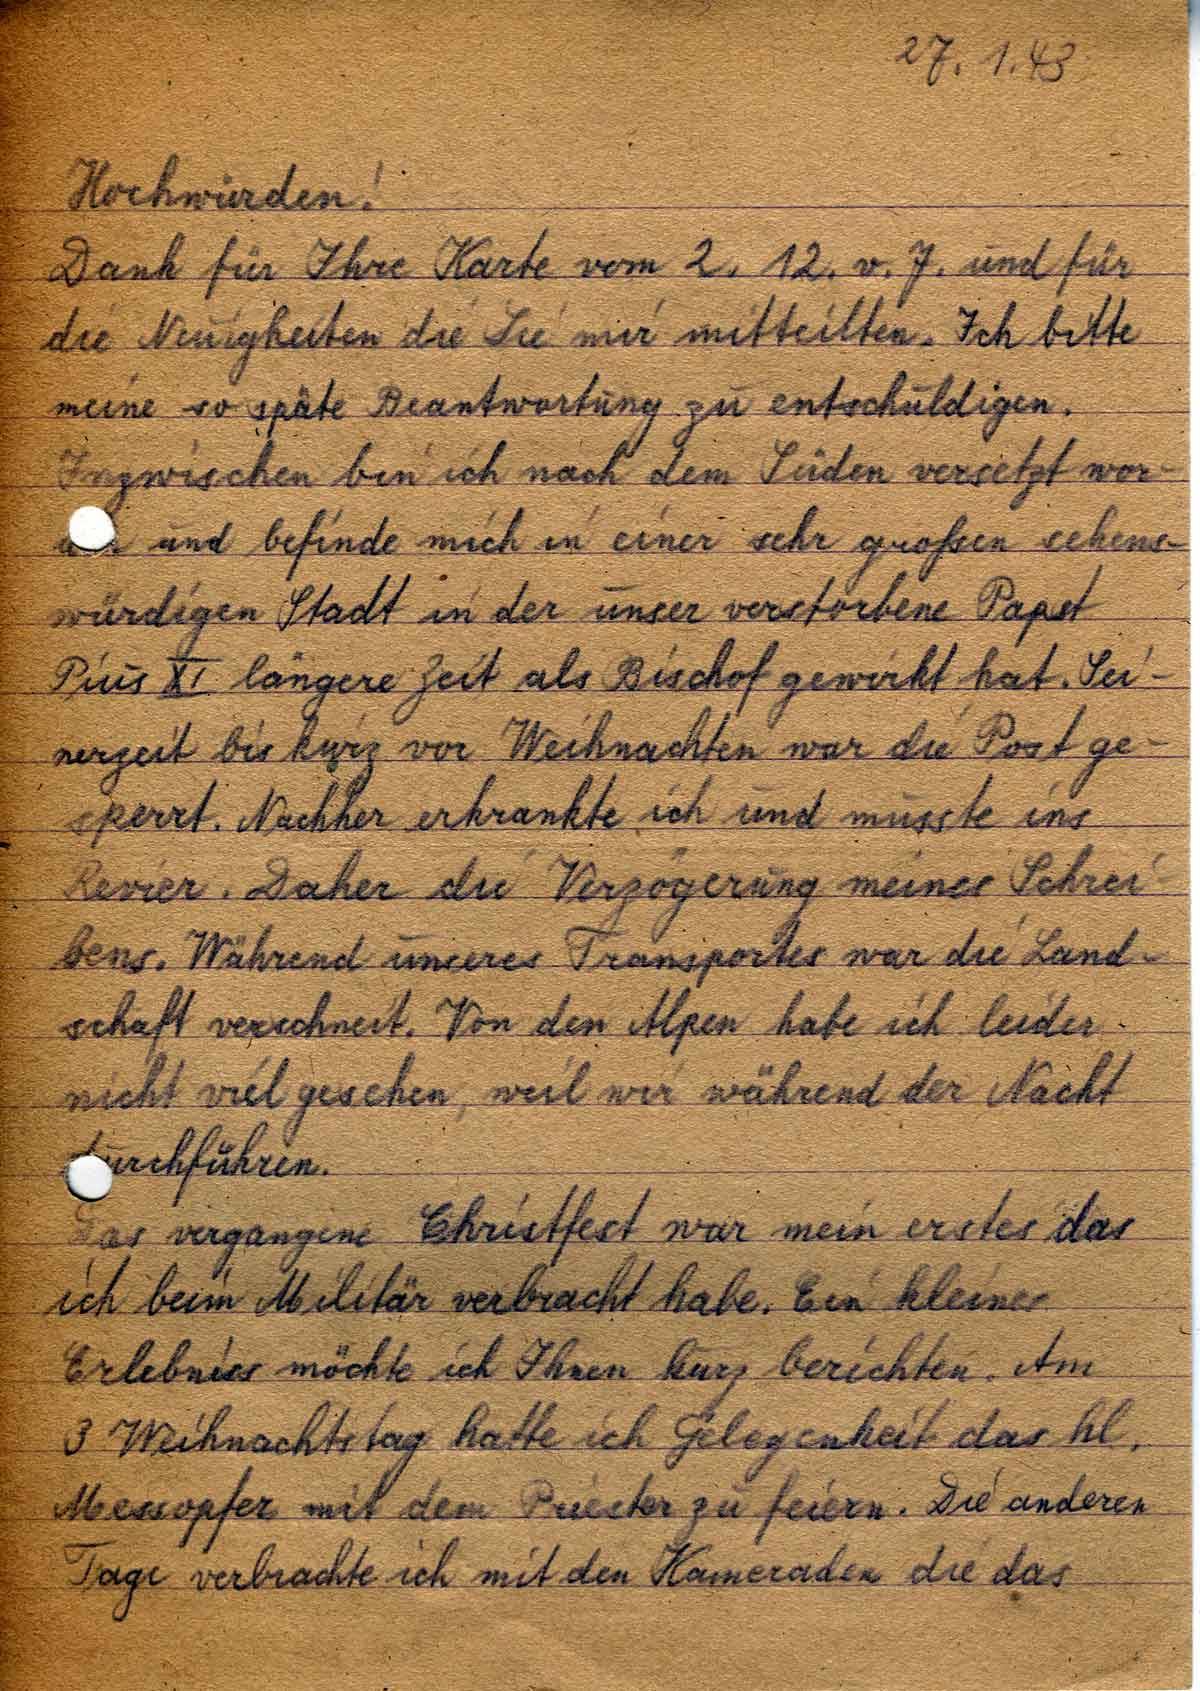 27. 1. 43
Hochwürden!
Dank für Ihre Karte vom 2. 12. v. J. und für
die Neuigkeiten die Sie mir mitteilten. Ich bitte
meine so späte Beantwortung zu entschuldigen.
Inzwischen bin ich nach dem Süden versetzt wor-
den und befinde mich in einer sehr großen sehens-
würdigen Stadt in der unser verstorbene Papst
Pius XI längere Zeit als Bischof gewirkt hat. Sei-
nerzeit bis kurz vor Weihnachten war die Post ge-
sperrt. Nachher erkrankte ich und musste ins
Revier. Daher die Verzögerung meines Schrei-
bens. Während unseres Transportes war die Land-
schaft verschneit. Von den Alpen habe ich leider
nicht viel gesehen, weil wir während der Nacht
durchführen.
Das vergangene Christfest war mein erstes das
ich beim Militär verbracht habe. Ein kleines
Erlebniss möchte ich Ihnen kurz berichten. Am
3 Weihnachtstag hatte ich Gelegenheit das hl.
Messopfer mit dem Priester zu feiern. Die anderen
Tage verbrachte ich mit den Kameraden die das